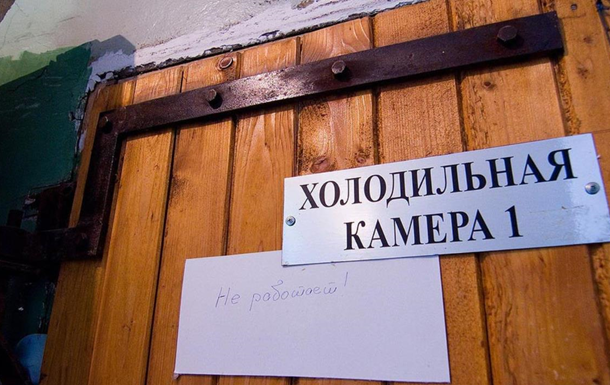 ХОЛОДИЛЬНАЯ
КАМЕРА 1
Не работает!